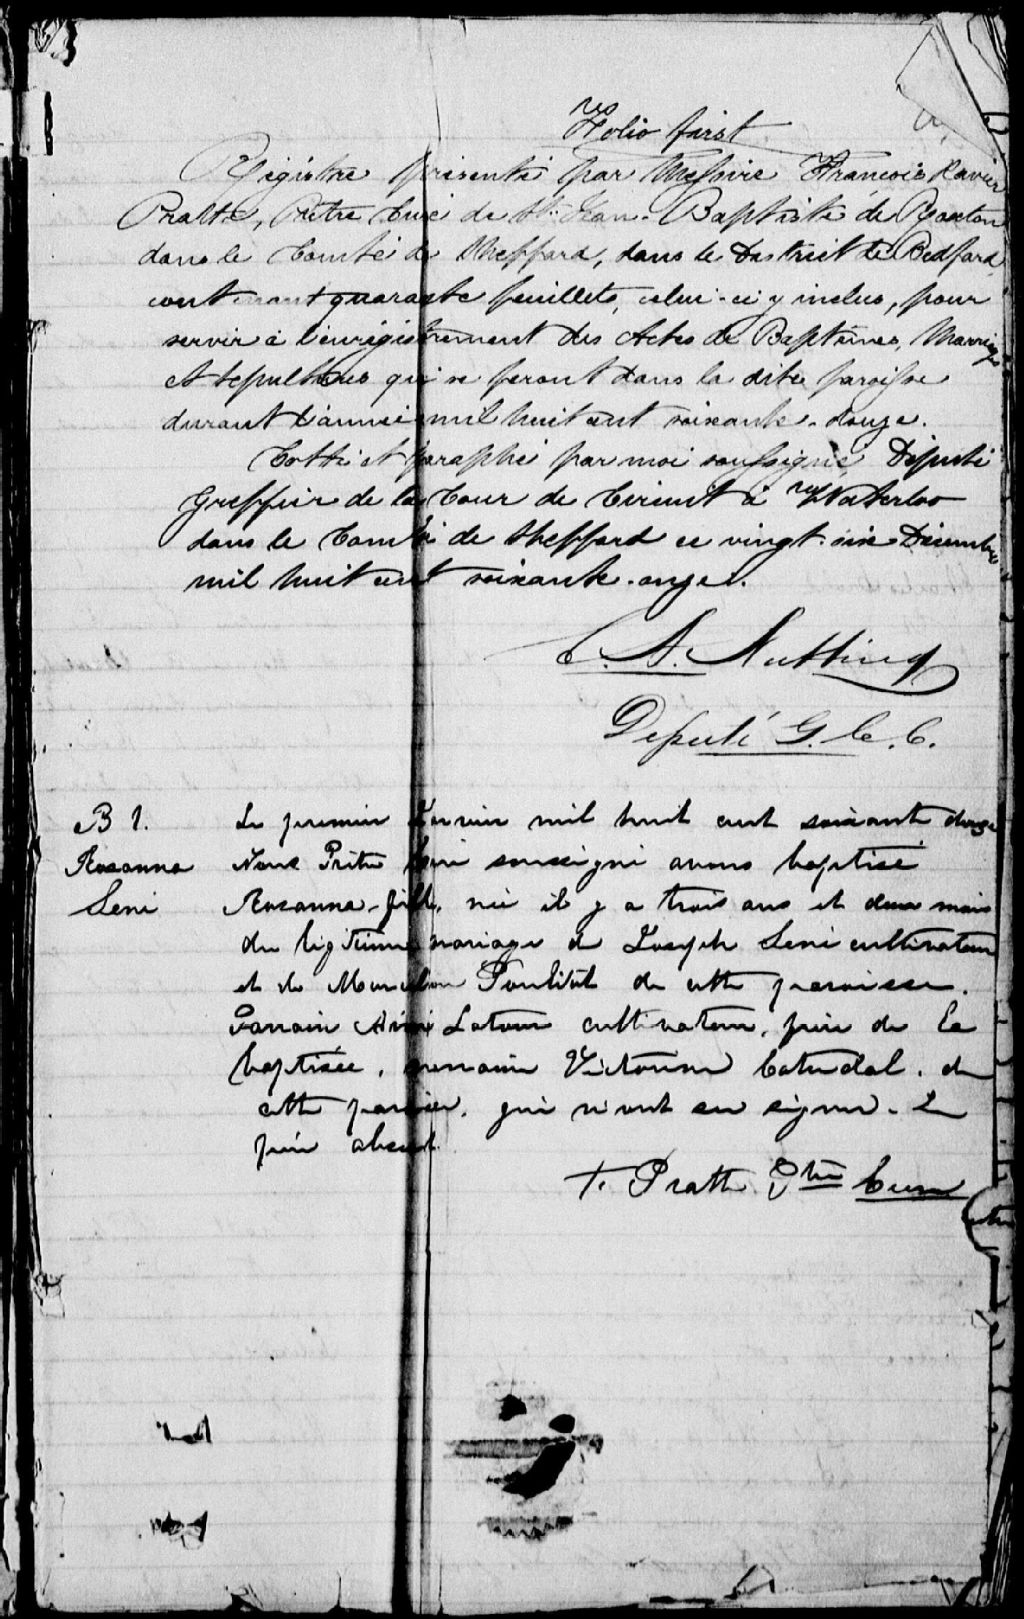 Folio first
Registre présenté par Messire François Xavier
Pratte, Prêtre Curé de St. Jean-Baptiste de Roxton
dans le Comté de Sheffard, dans le District de Bedford,
contenant quarante feuillets, celui-ci y inclus, pour
servir à l'enrégistrement des Actes de Baptêmes, Marriages
et Sépultures qui se feront dans la dite paroisse
durant l'année mil huit cent soixante-douze.
Cotté et paraphé par moi soussigné, Député
Greffier de la Cour de Circuit à Waterloo
dans le Comté de Sheffard ce vingt-six Décembre
mil huit cent soixante-onze.
C. A. Nutting
Député G. C. C.
B 1.
Rosanna
Seni
Le premier Janvier mil huit cent soixante douze
Nous Prêtre Curé soussigné avons baptisé
Rosanna, fille, née il y a trois ans et deux mois
du légitime mariage de Joseph Seni cultivateur
et de de cette paroisse.
Parrain Latour cultivateur, père de la
baptisée, marraine Victorine Catudal, de
cette paroisse, qui n'ont su signer. Le
père absent
F. Pratte Ptre Curé